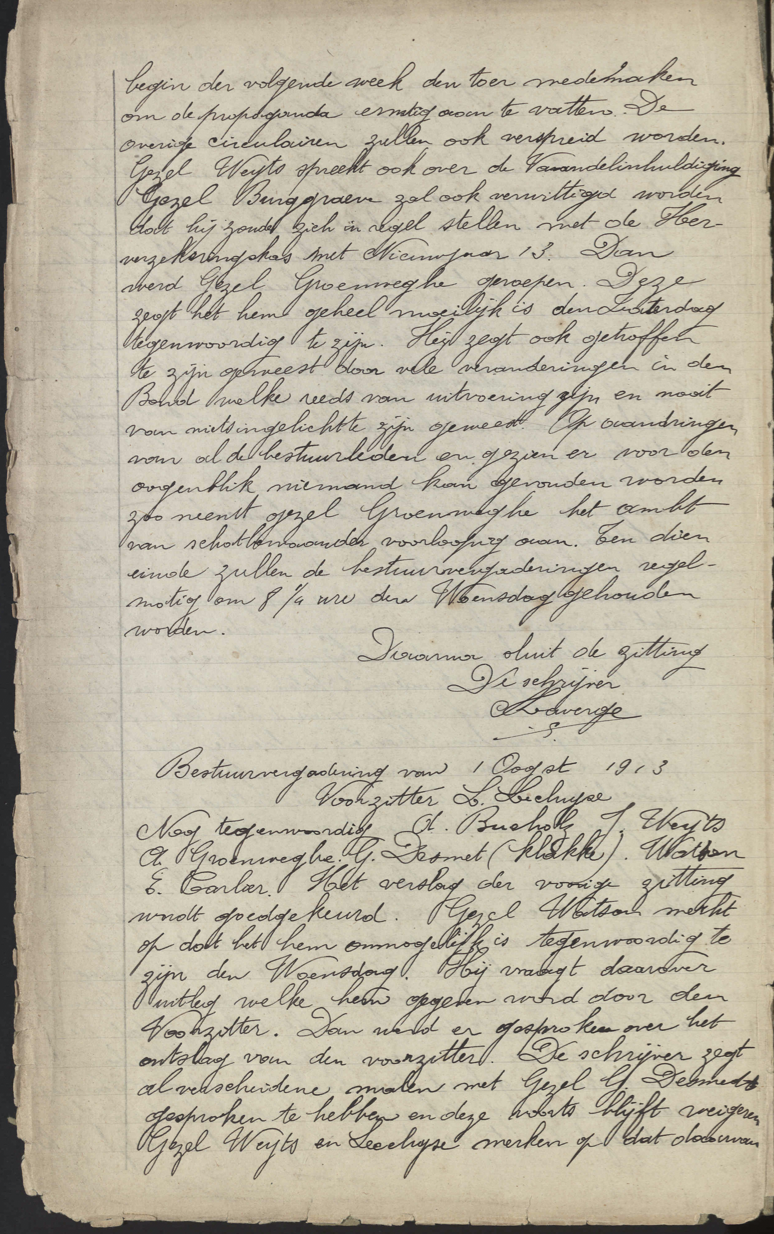 begin der volgende week den toer medemaken
om de propaganda ernstig aan te vatten. De
overige circulairen zullen ook verspreid worden.
Gezel Weyts spreekt ook over de Vaandelinhuldiging
Gezel Burggraeve zal ook verwittigd worden
dat hij zoude zich in regel stellen met de Her-
verzekeringskas met Nieuwjaar 13. Dan
werd Gezel Groenweghe geroepen. Deze
zegt het hem geheel moeilijk is den Zaterdag
tegenwoordig te zijn. Hij zegt ook getroffen
te zijn geweest door vele veranderingen in den
Bond welke reeds van uitvoering zijn en nooit
van niets ingelicht te zijn geweest. Op aandringen
van al de bestuurleden en gezien er voor den
oogenblik niemand kan gevonden worden
zoo neemt gezel Groenweghe het ambt
van schatbewaarder voorloopig aan. Ten dien
einde zullen de bestuurvergaderingen regel-
matig om 8 1/4 ure den Woensdag gehouden
worden.
Daarna sluit de zitting
De schrijver
Laverge
Bestuurvergadering van 1 Oogst 1913
Voorzitter L. Lechyse
Nog tegenwoordig A. J. Weyts
A. Groenweghe. G. Desmet (klakke). Watson
E. Carlier. Het verslag der vorige zitting
wordt goedgekeurd. Gezel Watson merkt
op dat het hem onmogelijk is tegenwoordig te
zijn den Woensdag. Hij vraagt daarover
uitleg welke hem gegeven werd door den
Voorzitter. Dan werd er gesproken over het
ontslag van den voorzitter. De schrijver zegt
al verscheidene malen met Gezel G. Desmedt
gesproken te hebben en deze voorts blijft weigeren
Gezel Weyts en Leechyse merken op dat daarvan